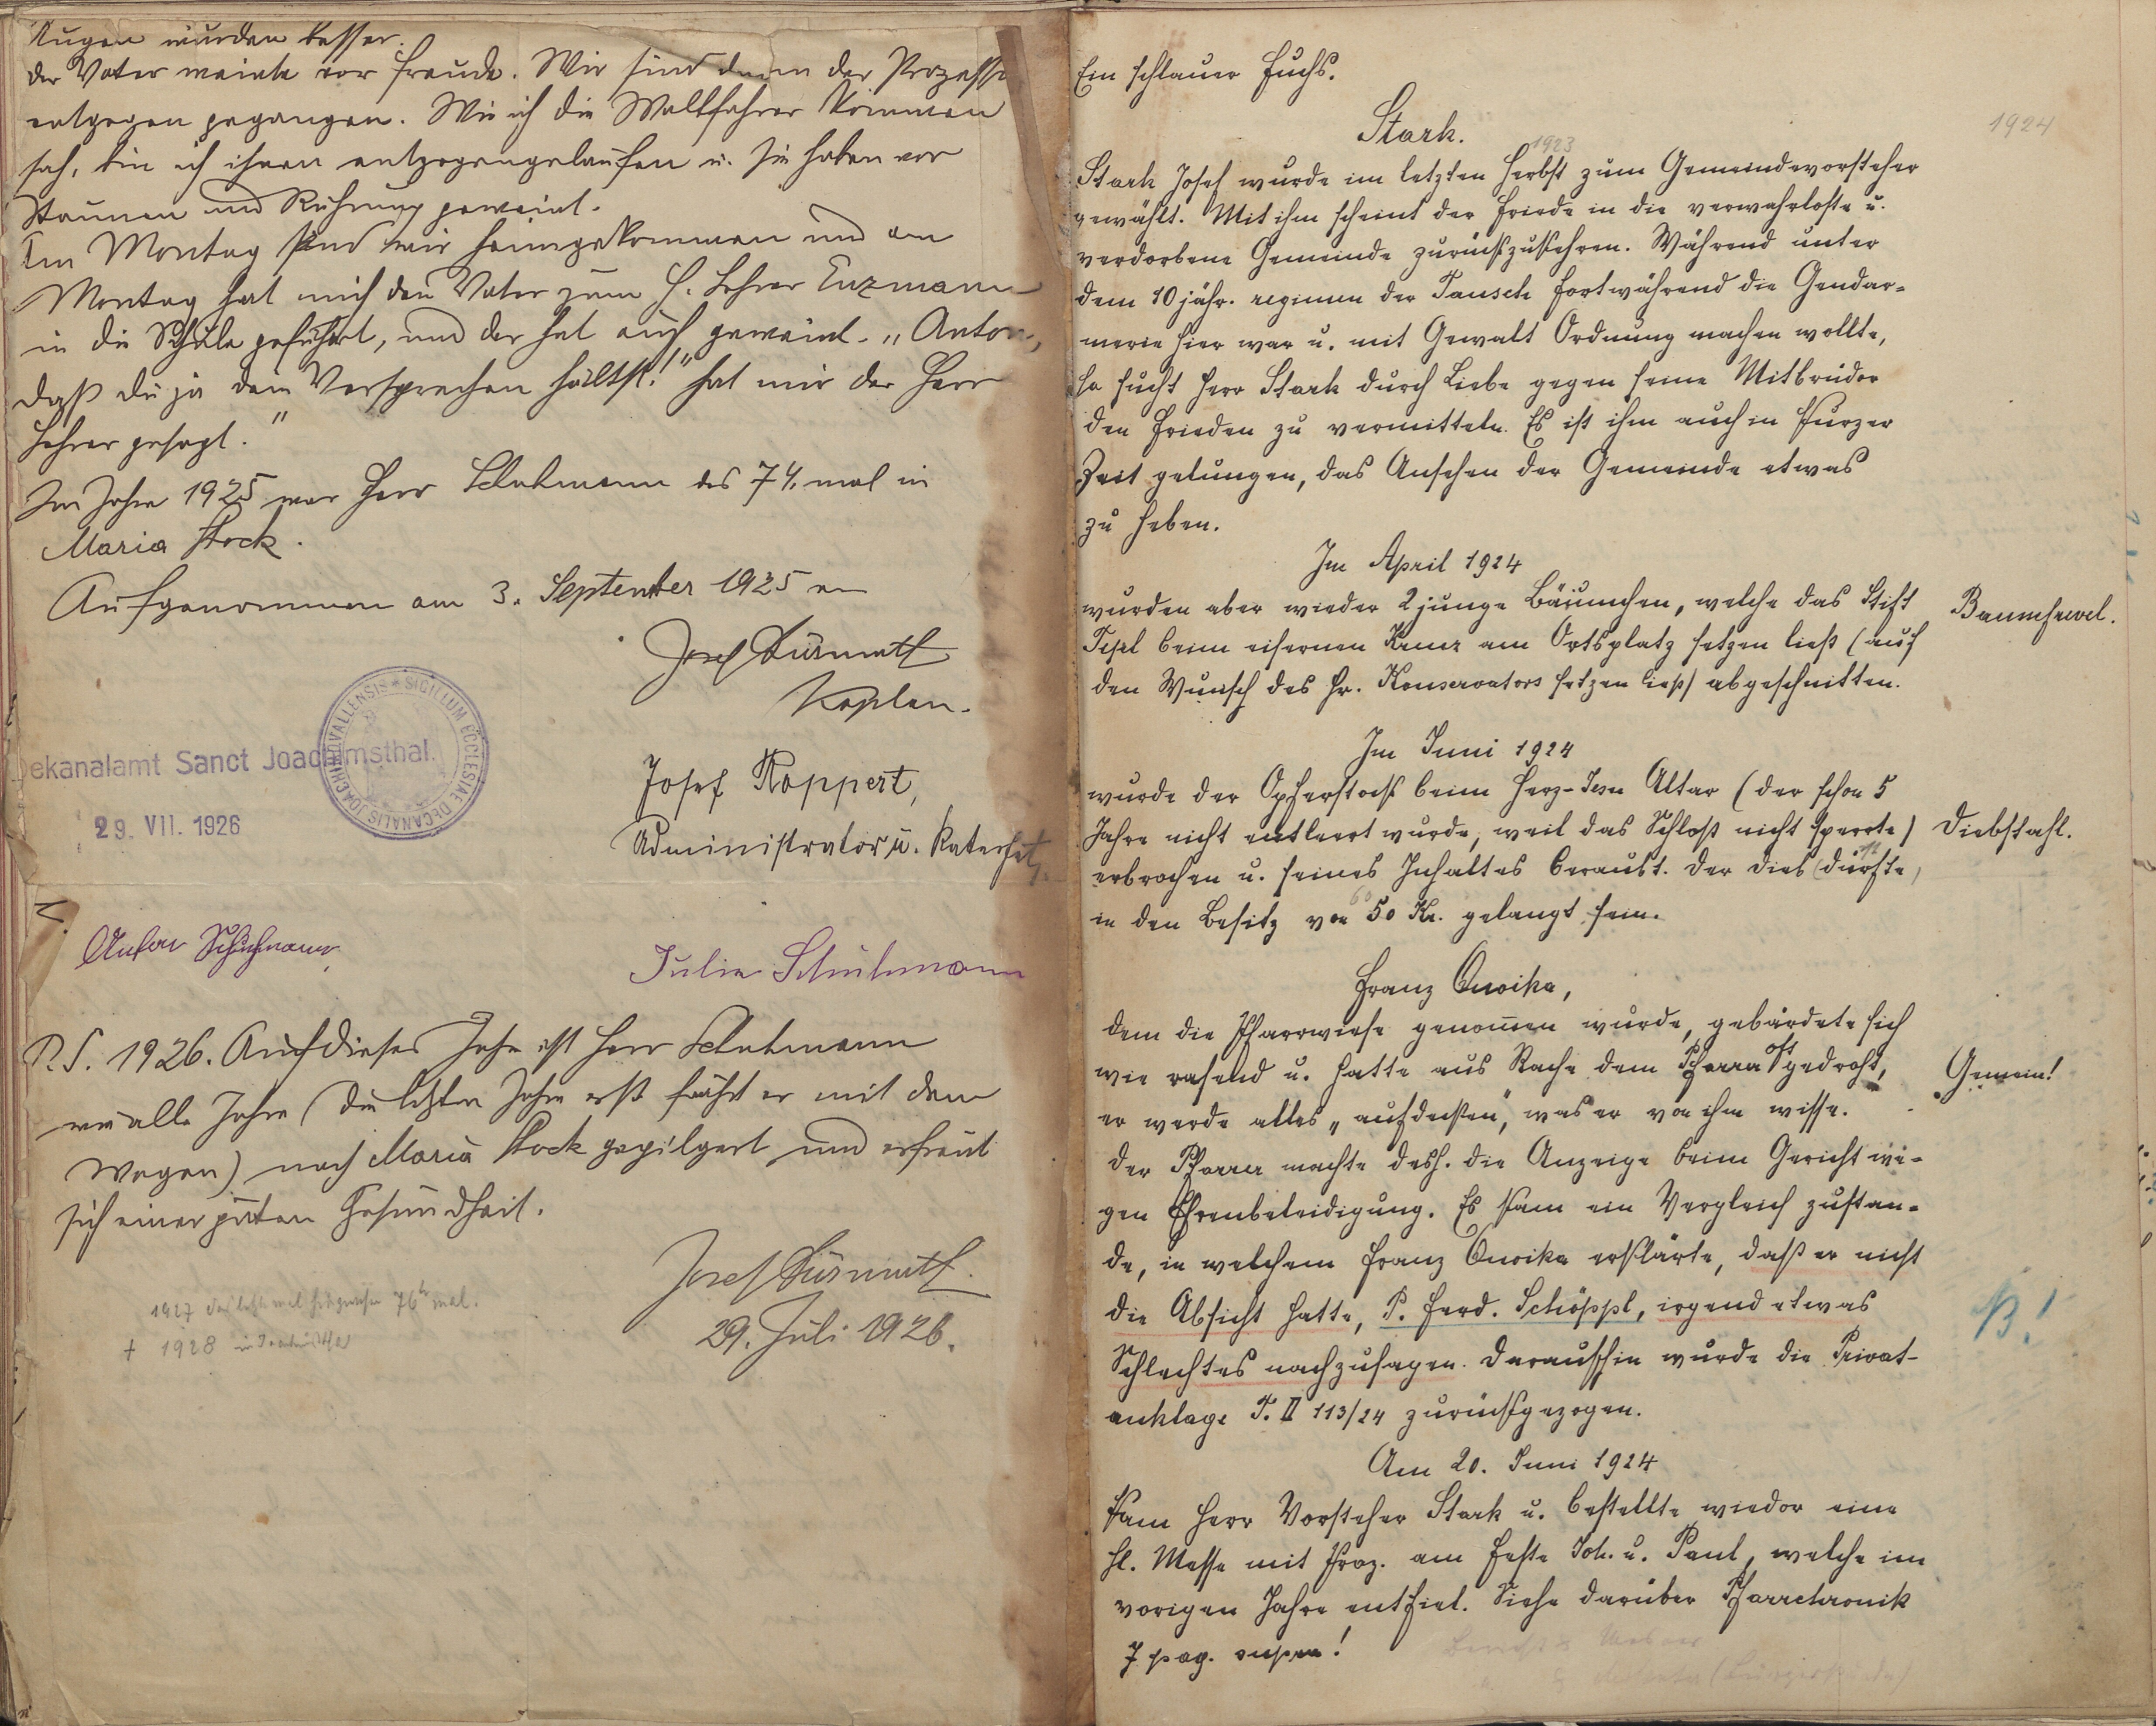 Augen wurden besser.
Der Vater weinte vor Freude. Wir sind dann der Prozession
entgegen gegangen. Wie ich die Wallfahrer kommen
sah, bin ich ihnen entgegengelaufen u. sie haben vor
Staunen und Rührung geweint.
Am Montag sind wir heimgekommen und am
Montag hat mich der Vater zum H. Lehrer Enzmann
in die Schule geführt, und der hat auch geweint. „Anton,
daß du ja dein Versprechen hältst!" hat mir der Herr
Lehrer gesagt."
Im Jahre 1925 war Herr Schuhmann das 74. mal in
Maria Stock.
Aufgenommen am 3. September 1925 von
Josef Süsmuth
Kaplan.
Dekanalamt Sanct Joachimsthal.
SIGILLUM ECCLESIAE DECANALIS JOACHIMOVALLENSIS
29. VII. 1926
Josef Koppert,
Administrator u. Katechet.
Anton Schuhmann
Julie Schuhmann
P.S. 1926. Auch dieses Jahr ist Herr Schuhmann
wie alle Jahre (die letzten Jahre erst fährt er mit dem
Wagen) nach Maria Stock gepilgert und erfreut
sich einer guten Gesundheit.
Josef Süsmuth.
29. Juli 1926.
1927 das letzte mal 76 mal.
† 1928 in
Ein schlauer Fuchs.
1924
Stark.
1923
Stark Josef wurde im letzten Herbst zum Gemeindevorsteher
gewählt. Mit ihm scheint der Friede in die verwahrloste u.
verdorbene Gemeinde zurückzukehren. Während unter
dem 10 jähr. regimen der Tausch fortwährend die Gendar-
merie hier war u. mit Gewalt Ordnung machen wollte,
so sucht Herr Stark durch Liebe gegen seine Mitbrüder
den Frieden zu vermitteln. Es ist ihm auch in kurzer
Zeit gelungen, das Ansehen der Gemeinde etwas
zu heben.
Im April 1924
wurden aber wieder 2 junge Bäumchen, welche das Stift
Baumfrevel.
Tepl beim eisernen Kreuz am Ortsplatz setzen ließ (auf
den Wunsch des Hr. Konservators setzen ließ) abgeschnitten.
Im Juni 1924
wurde der Opferstock beim Herz-Jesu Altar (der schon 5
Jahre nicht entleert wurde, weil das Schloß nicht sperrte)
Diebstahl.
erbrochen u. seines Inhaltes beraubt. Der Dieb dürfte
in den Besitz von 50 Kr. gelangt sein.
60
Franz Onoika,
dem die Pfarrwiese genommen wurde, gebärdete sich
wie rasend u. hatte aus Rache dem Pfarrer oft gedroht,
Gemein!
er werde alles „aufdecken", was er von ihm wisse.
Der Pfarrer machte desh. die Anzeige beim Gericht we-
gen Ehrenbeleidigung. Es kam ein Vergleich zustan-
de, in welchem Franz Onoika erklärte, daß er nicht
die Absicht hatte, P. Ferd. Schöppl, irgend etwas
Schlechtes nachzusagen. Daraufhin wurde die Privat-
anklage T. II 113/24 zurückgezogen.
Am 20. Juni 1924
kam Herr Vorsteher Stark u. bestellte wieder eine
hl. Messe mit Proz. am Feste Joh. u. Paul, welche im
vorigen Jahre entfiel. Siehe darüber Pfarrchronik
7 pag. supra!